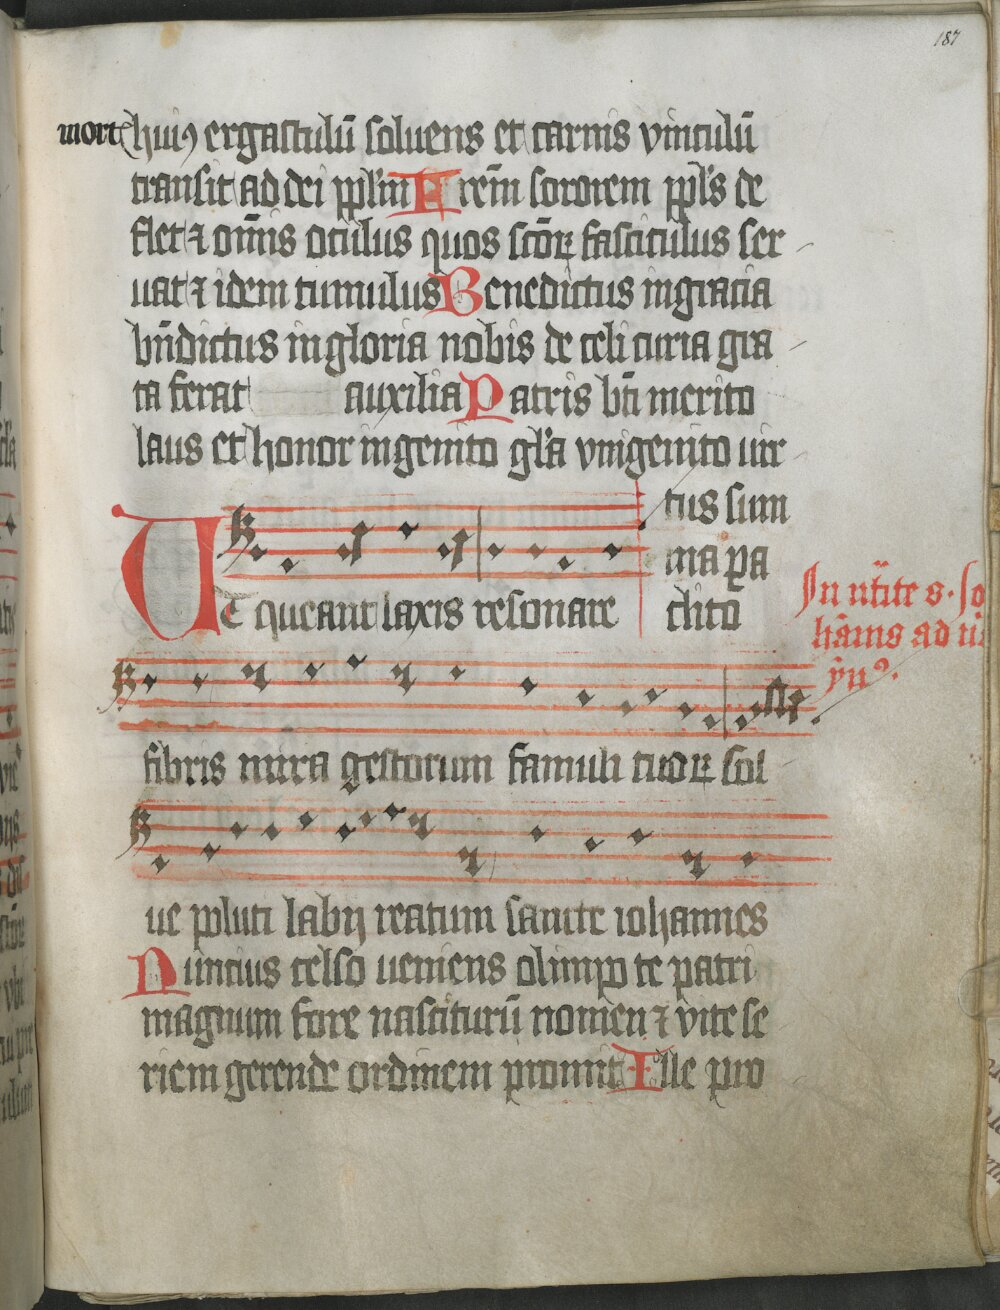 187
mort huiꝰ ergastulū soluens et carnis vinculū
transit ad dei ppl'm Frēm sororem ppl's de
flet ⁊ om̄is oculus quos sctōꝝ fasciculus ser
uat ⁊ idem tumulus Benedictus in gracia
bn̄dictus in gloria nobis de celi curia gra
ta ferat auxilia Patris bt̄i merito
laus et honor ingenito gl'a vnigenito uir
tus sum
ma ꝑa
clito
Ut queant laxis resonare
In nt̄iite s. Jo
hānis ad
ẏmꝰ.
fibris mira gestorum famuli tuoꝝ sol
ue polluti labij reatum sancte iohannes
Nuncius celso ueniens olimpo te patri
magnum fore nasciturū nomen ⁊ vite se
riem gerende ordinem promit Ille pro